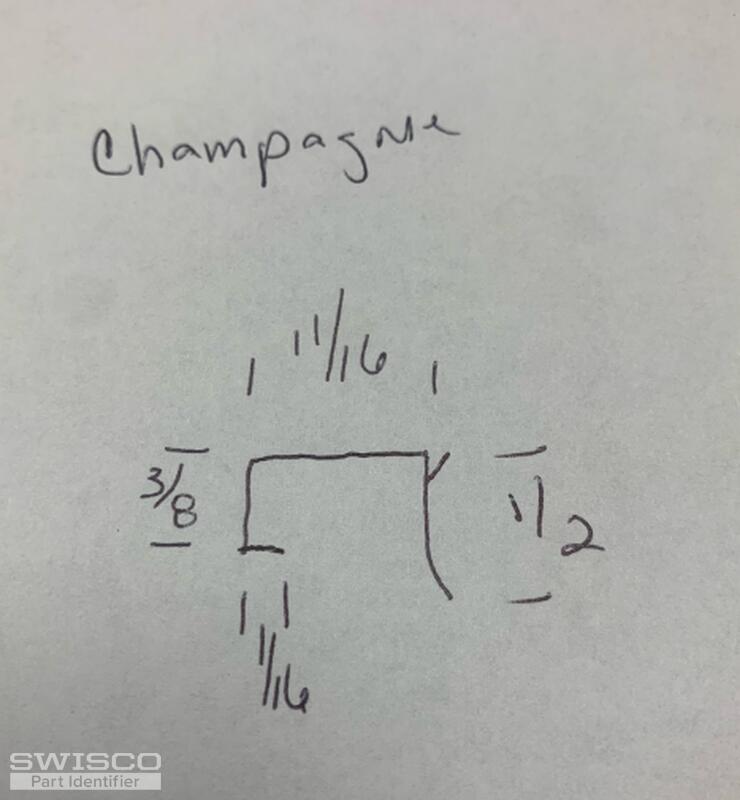 Champagne
11/16
3/8
1/2
1/16
SWISCO
Part Identifier